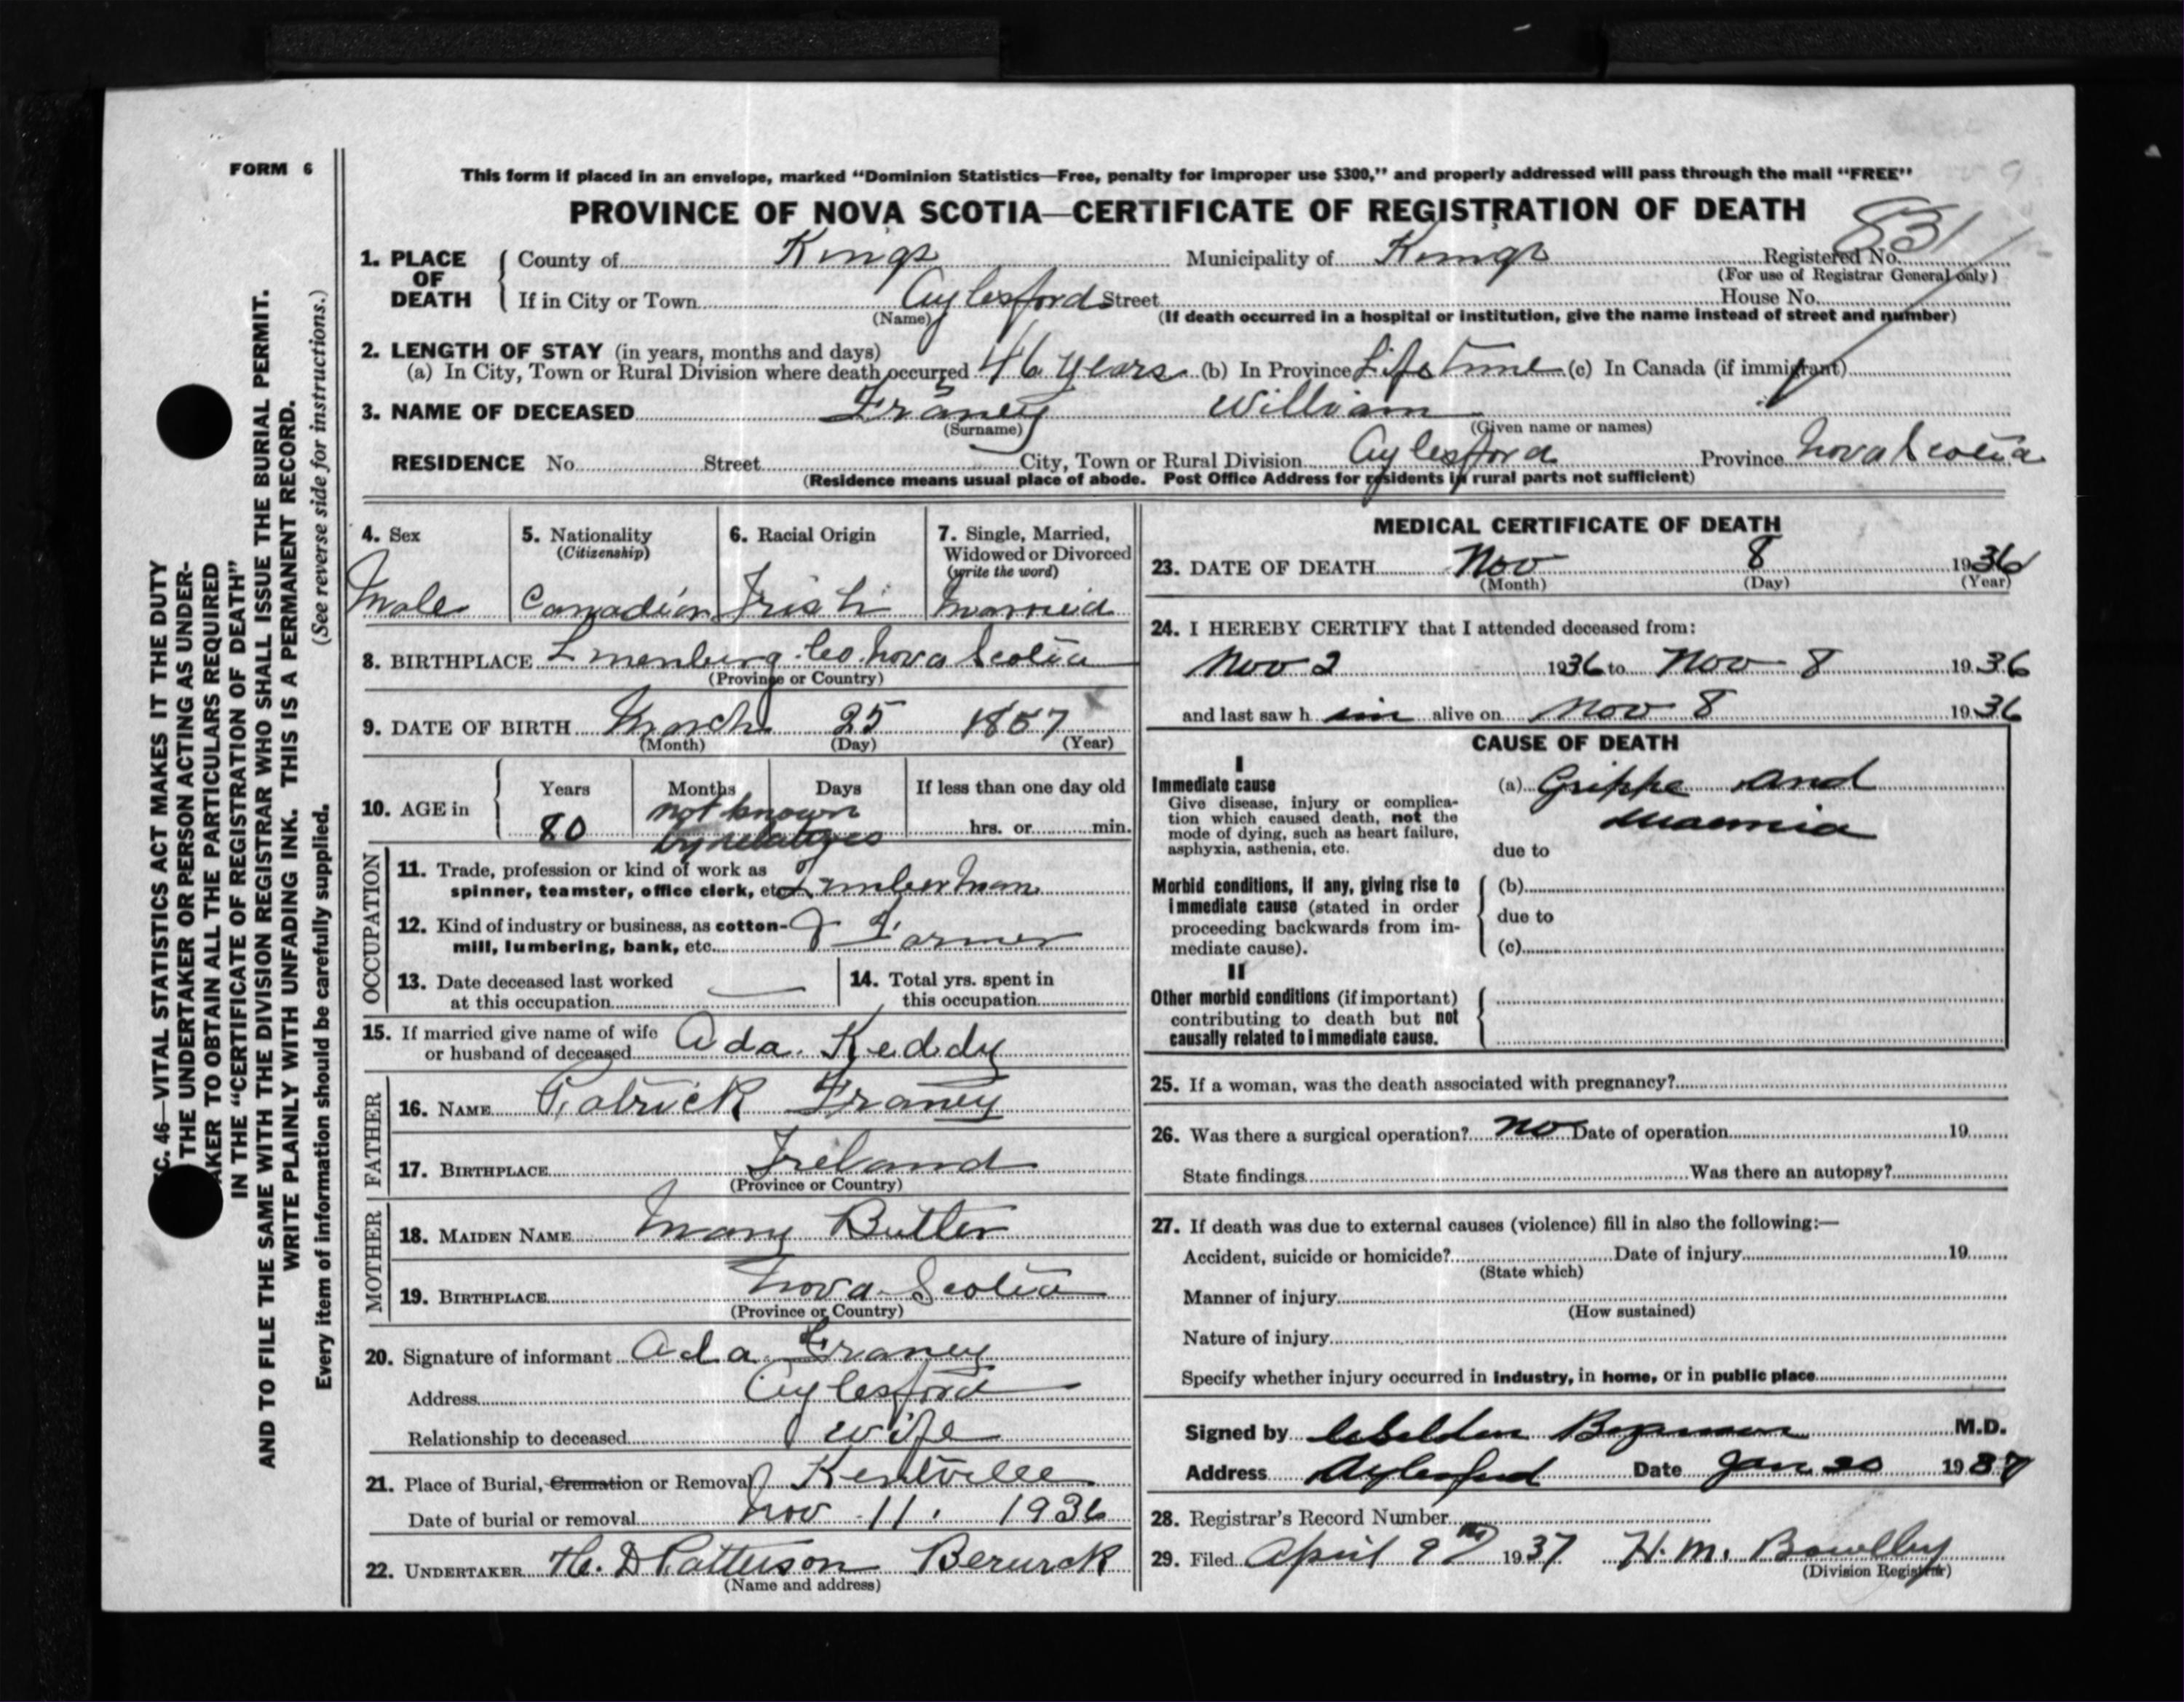 FORM 6
This form if placed in an envelope, marked "Dominion Statistics—Free, penalty for improper use $300," and properly addressed will pass through the mail "FREE"
PROVINCE OF NOVA SCOTIA—CERTIFICATE OF REGISTRATION OF DEATH
831
1. PLACE OF DEATH { County of Kings Municipality of Kings Registered No.
(For use of Registrar General only)
If in City or Town Aylesford Street House No.
(Name) (If death occurred in a hospital or institution, give the name instead of street and number)
2. LENGTH OF STAY (in years, months and days)
(a) In City, Town or Rural Division where death occurred 46 years (b) In Province Life time (c) In Canada (if immigrant)
3. NAME OF DECEASED Franey William
(Surname) (Given name or names)
RESIDENCE No. Street City, Town or Rural Division Aylesford Province Nova Scotia
(Residence means usual place of abode. Post Office Address for residents in rural parts not sufficient)
4. Sex 5. Nationality (Citizenship) 6. Racial Origin 7. Single, Married, Widowed or Divorced (write the word)
Male Canadian Irish married
8. BIRTHPLACE Lunenburg Co Nova Scotia
(Province or Country)
9. DATE OF BIRTH March 25 1857
(Month) (Day) (Year)
10. AGE in { Years Months Days If less than one day old
80 not known by relatives hrs. or min.
OCCUPATION
11. Trade, profession or kind of work as
spinner, teamster, office clerk, etc. Lumberman
12. Kind of industry or business, as cotton-
mill, lumbering, bank, etc. & Farmer
13. Date deceased last worked
at this occupation —
14. Total yrs. spent in
this occupation
15. If married give name of wife
or husband of deceased Ada Keddy
FATHER
16. NAME Patrick Franey
17. BIRTHPLACE Ireland
(Province or Country)
MOTHER
18. MAIDEN NAME Mary Butler
19. BIRTHPLACE Nova Scotia
(Province or Country)
20. Signature of informant Ada Franey
Address Aylesford
Relationship to deceased wife
21. Place of Burial, Cremation or Removal Kentville
Date of burial or removal Nov 11, 1936
22. UNDERTAKER H. D Patterson Berwick
(Name and address)
MEDICAL CERTIFICATE OF DEATH
23. DATE OF DEATH Nov 8 1936
(Month) (Day) (Year)
24. I HEREBY CERTIFY that I attended deceased from:
Nov 2 1936 to Nov 8 1936
and last saw h im alive on Nov 8 1936
CAUSE OF DEATH
I
Immediate cause (a) Grippe and
Give disease, injury or complica-
tion which caused death, not the
mode of dying, such as heart failure,
asphyxia, asthenia, etc.
uraemia
due to
Morbid conditions, if any, giving rise to
immediate cause (stated in order
proceeding backwards from im-
mediate cause).
(b)
due to
(c)
II
Other morbid conditions (if important)
contributing to death but not
causally related to immediate cause.
25. If a woman, was the death associated with pregnancy?
26. Was there a surgical operation? No Date of operation 19
State findings Was there an autopsy?
27. If death was due to external causes (violence) fill in also the following:—
Accident, suicide or homicide? Date of injury 19
(State which)
Manner of injury
(How sustained)
Nature of injury
Specify whether injury occurred in industry, in home, or in public place
Signed by M.D.
Address Aylesford Date Jan 20 1937
28. Registrar's Record Number
29. Filed April 9th 1937 H. M. Bowlby
(Division Registrar)
C. 46—VITAL STATISTICS ACT MAKES IT THE DUTY
THE UNDERTAKER OR PERSON ACTING AS UNDER-
AKER TO OBTAIN ALL THE PARTICULARS REQUIRED
IN THE "CERTIFICATE OF REGISTRATION OF DEATH"
AND TO FILE THE SAME WITH THE DIVISION REGISTRAR WHO SHALL ISSUE THE BURIAL PERMIT.
WRITE PLAINLY WITH UNFADING INK. THIS IS A PERMANENT RECORD.
Every item of information should be carefully supplied. (See reverse side for instructions.)